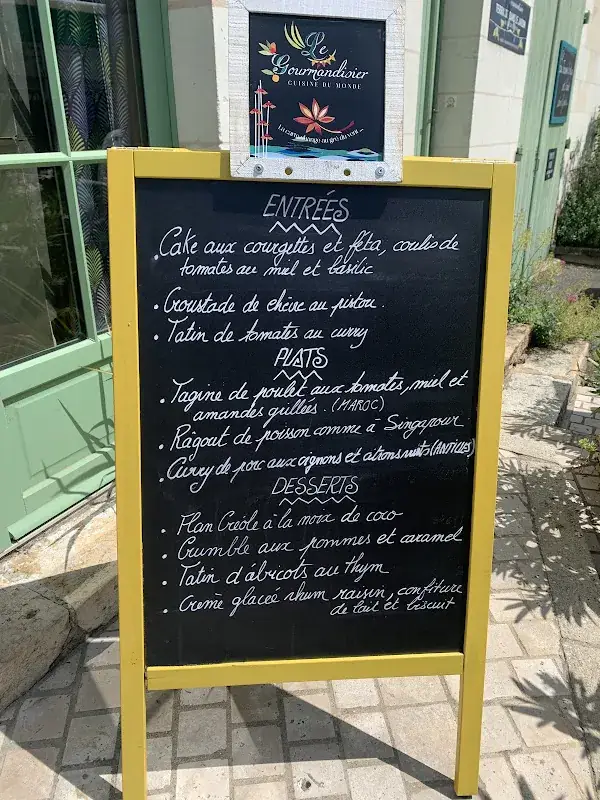 Le
Gourmandisier
CUISINE DU MONDE
La carte change au gré du vent...
ENTRÉES
. Cake aux courgettes et féta, coulis de
tomates au miel et basilic
. Croustade de chèvre au pistou.
. Tatin de tomates au curry
PLATS
. Tagine de poulet aux tomates, miel et
amandes grillées. (MAROC)
. Ragoût de poisson comme à Singapour
. Curry de porc aux oignons et citrons verts (ANTILLES)
DESSERTS
. Flan Créole à la noix de coco
. Crumble aux pommes et caramel
. Tatin d'abricots au thym
. Crème glacée rhum raisin, confiture
de lait et biscuit